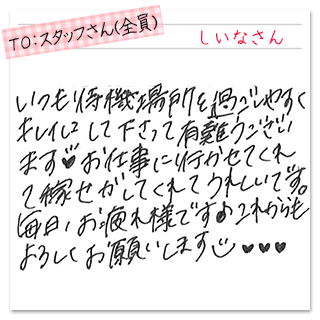 TO:スタッフさん(全員)
しいなさん
いつも待機場所を過ごしやすく
キレイにして下さって有難うござい
ます♥お仕事に行かせてくれ
て稼せがしてくれてうれしいです。
毎日、お疲れ様です♪これからも
よろしくお願いします♥♥♥